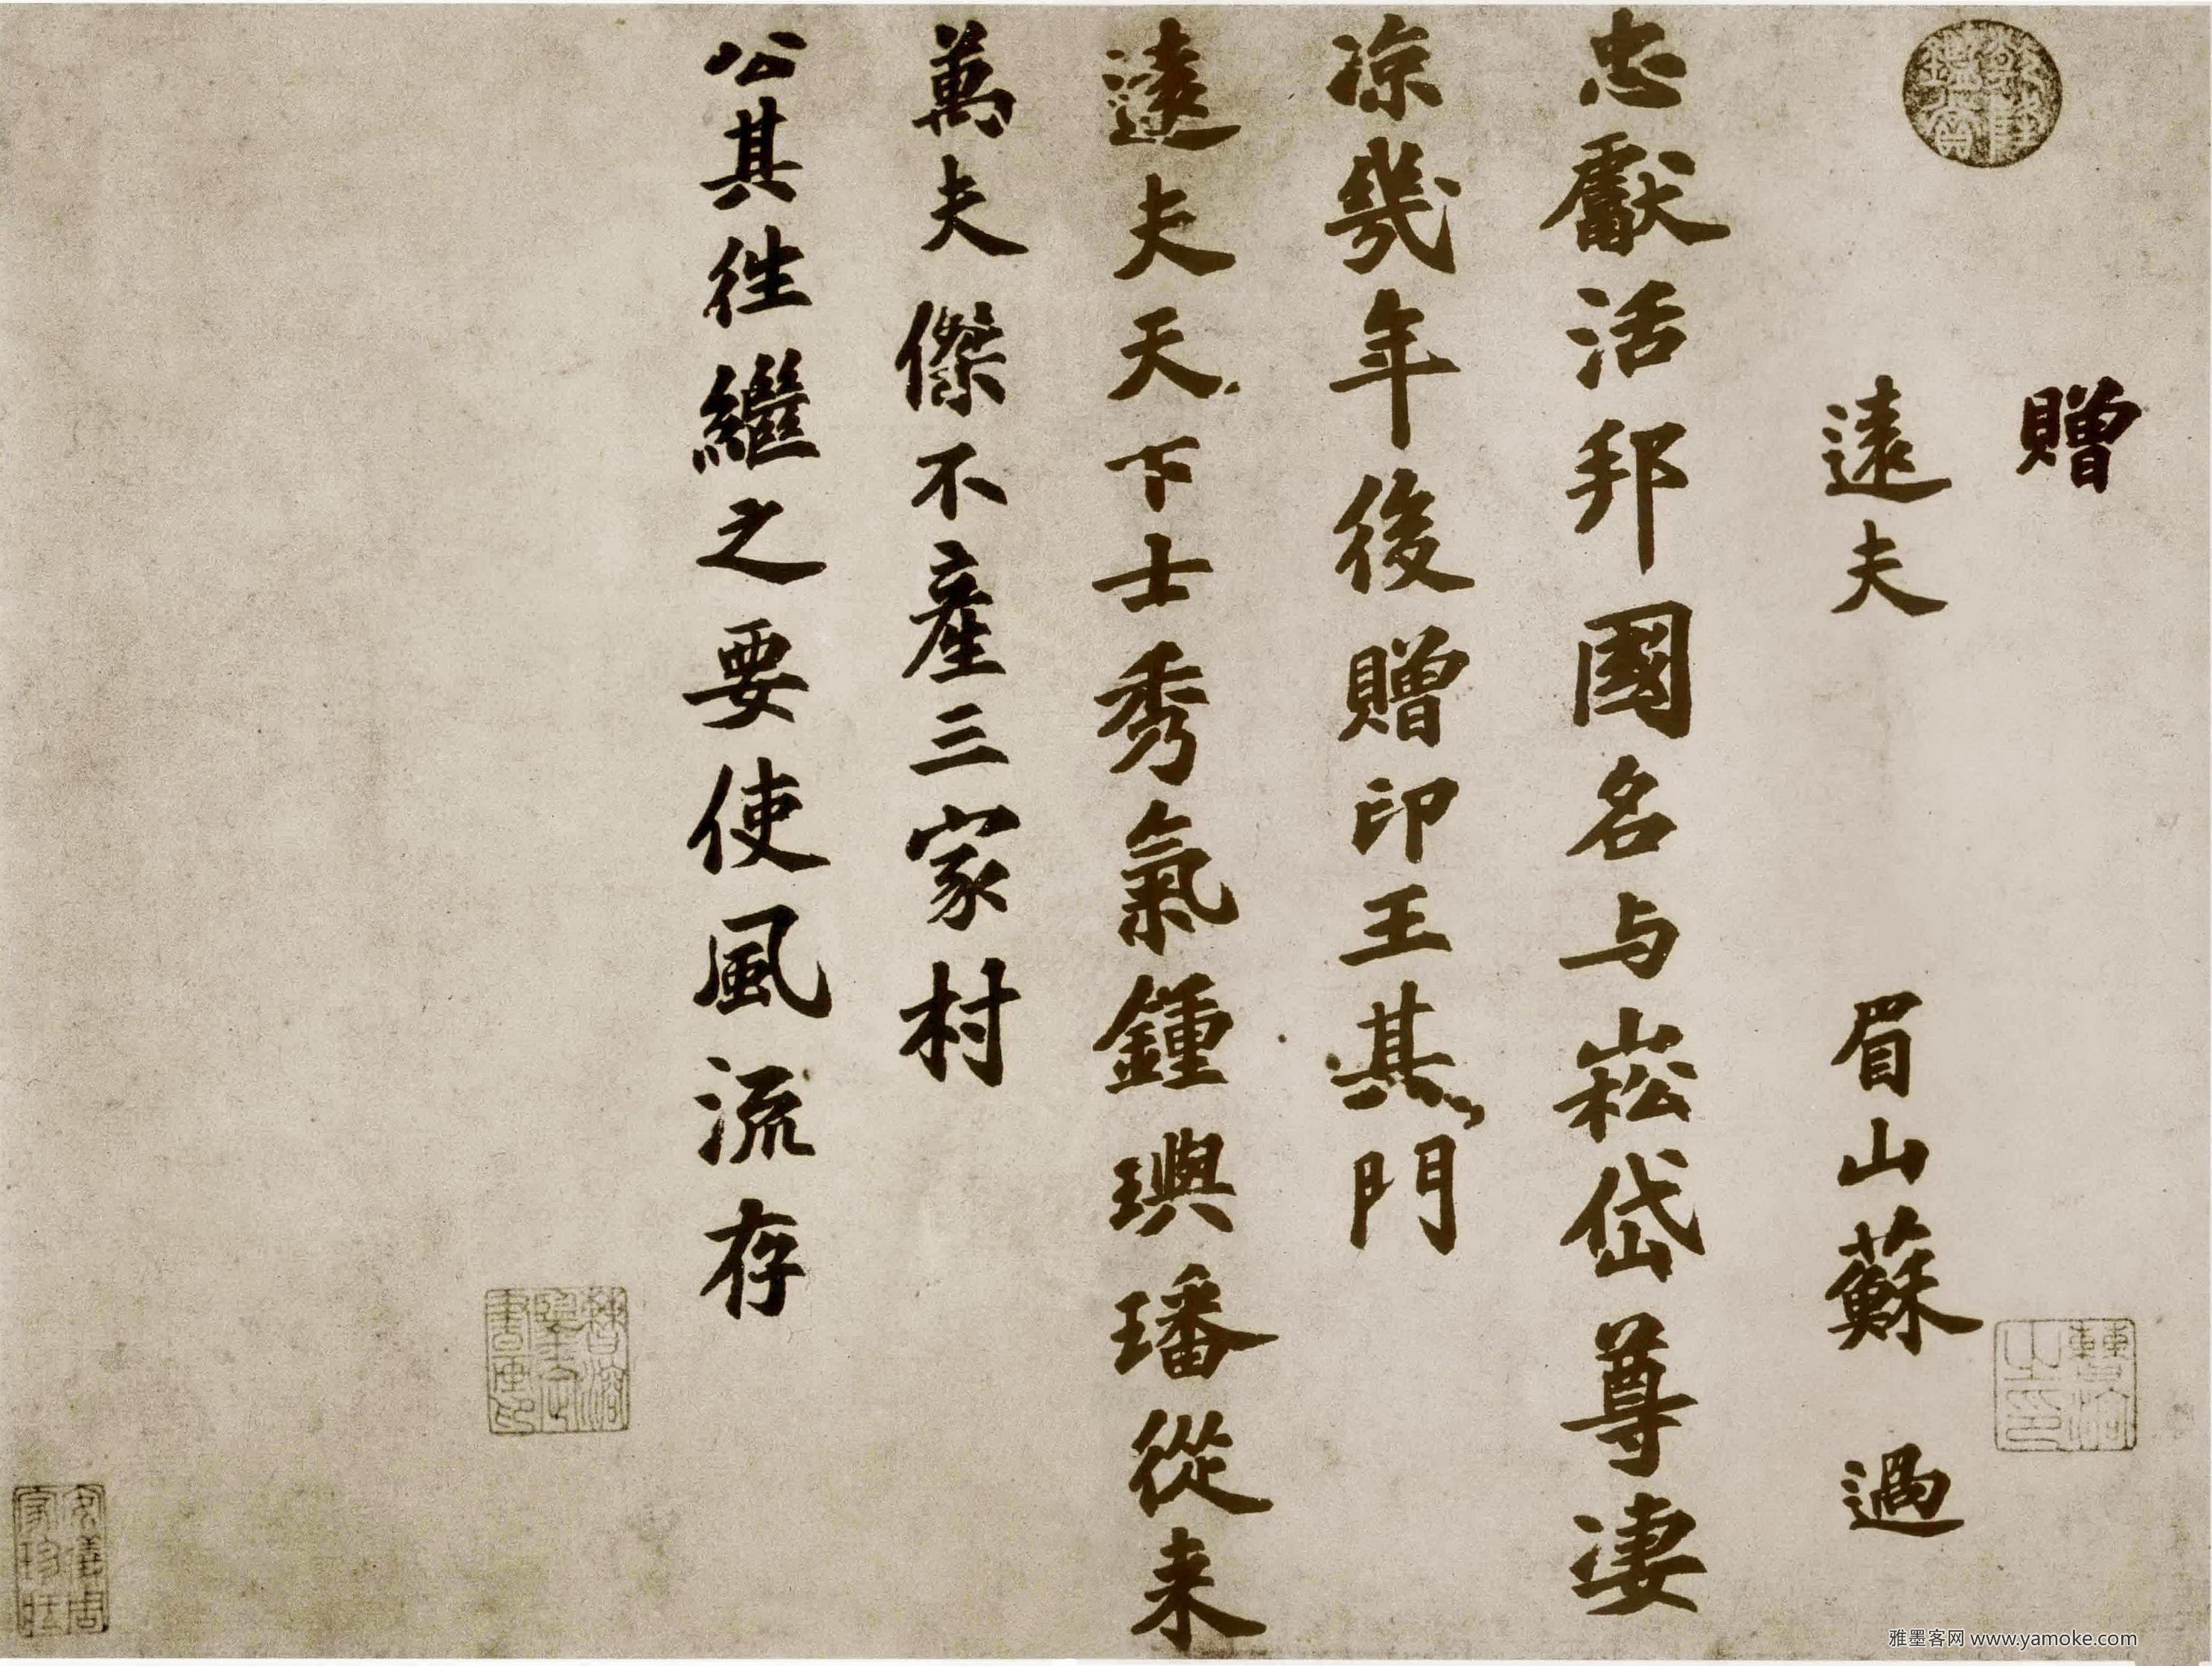 贈
遠夫　眉山蘇過
忠獻活邦國名与崧岱尊凄
凉幾年後贈印王其門
遠夫天下士秀氣鍾璵璠從来
萬夫傑不產三家村
公其往繼之要使風流存
乾隆鑑賞
安儀周家珍藏
雅墨客网 www.yamoke.com